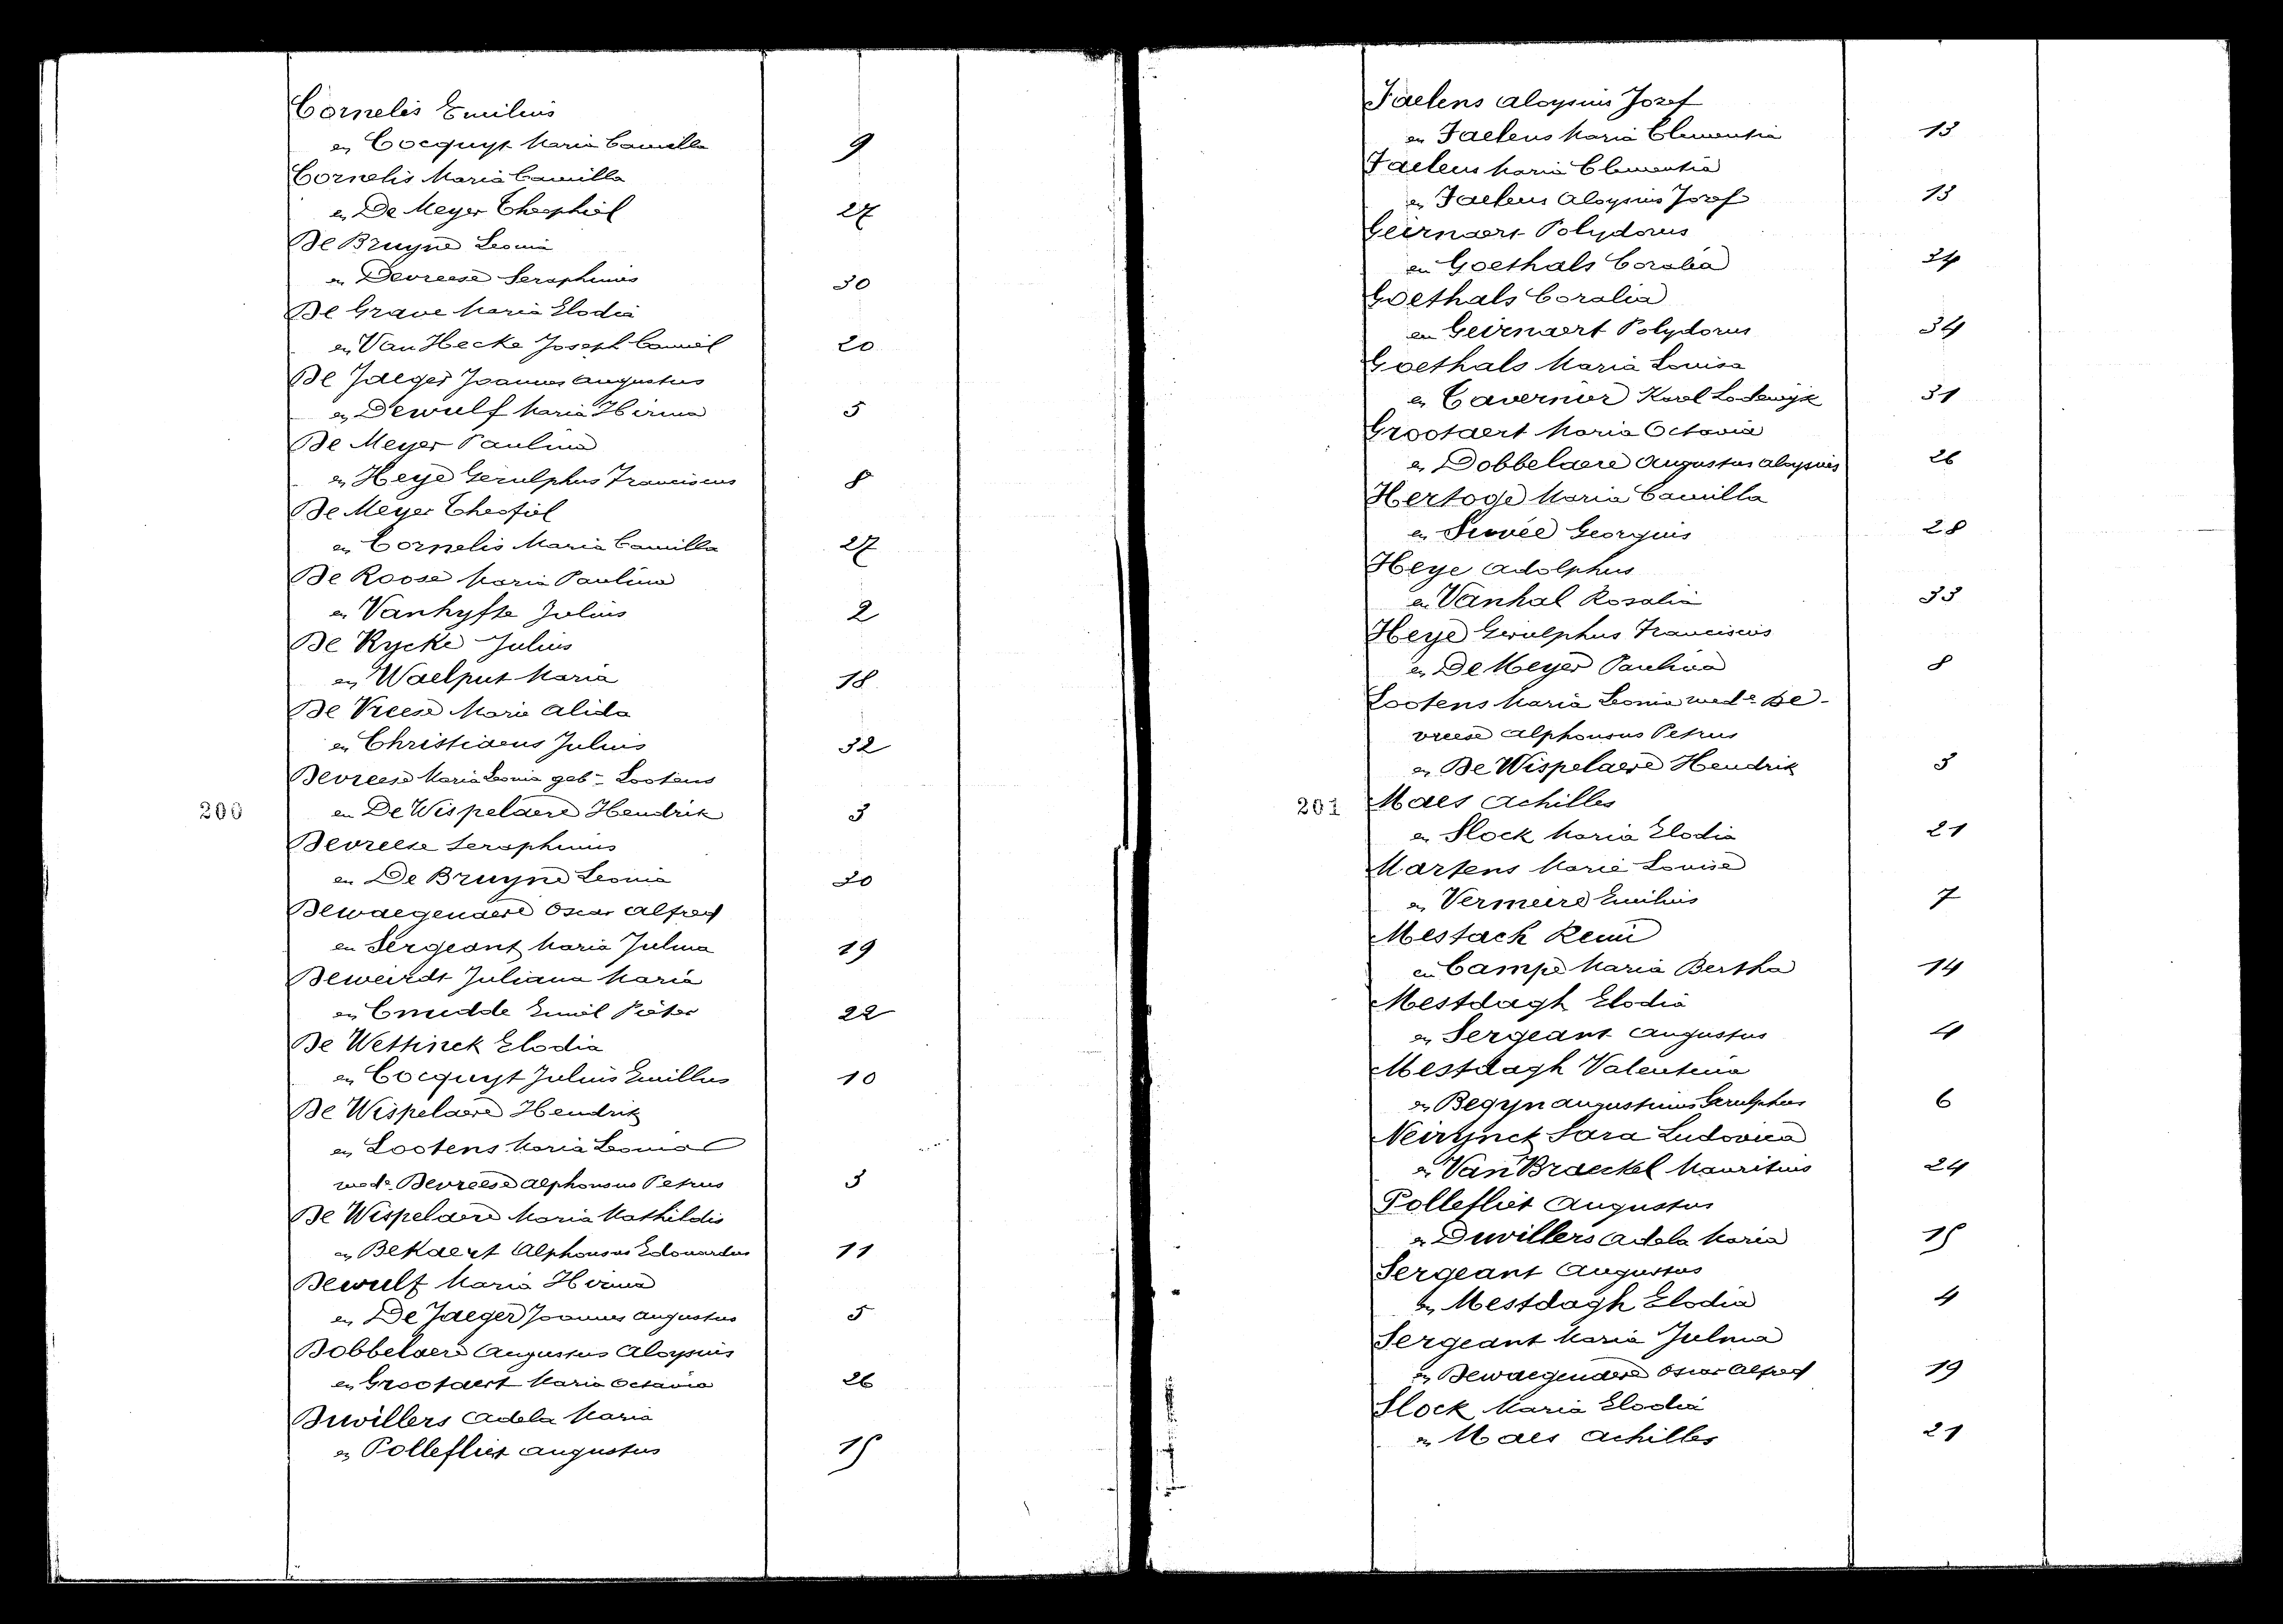 Cornelis Emilius
en Cocquyt Maria Camilla 9
Cornelis Maria Camilla
en De Meyer Theophiel 27
De Bruyne Leonia
en Devreese Seraphinus 30
De Grave Maria Elodia
en Van Hecke Joseph Camiel 20
De Jaeger Joannes Augustus
en Dewulf Maria Hirma 5
De Meyer Paulina
en Heye Gerulphus Franciscus 8
De Meyer Theofiel
en Cornelis Maria Camilla 27
De Roose Maria Paulina
en Vanhyfte Julius 2
De Rycke Julius
en Waelput Maria 18
De Vreese Marie Alida
en Christiaens Julius 32
Devreese Maria Leonia geb. Lootens
200 en De Wispelaere Hendrik 3
Devreese Seraphinus
en De Bruyne Leonia 30
Dewaegenaere Oscar Alfred
en Sergeant Maria Julma 19
Deweirdt Juliana Maria
en Cnudde Emiel Pieter 22
De Wettinck Elodia
en Cocquyt Julius Emillus 10
De Wispelaere Hendrik
en Lootens Maria Leonia
wede Devreese Alphonsus Petrus 3
De Wispelaere Maria Mathildis
en BeKaert Alphonsus Edouardus 11
Dewulf Maria Hirma
en De Jaeger Joannes Augustus 5
Dobbelaere Augustus Aloysius
en Grootaert Maria Octavia 26
Duvillers Adela Maria
en Pollefliet Augustus 15
Faelens Aloysius Jozef
en Faelens Maria Clementia 13
Faelens Maria Clementia
en Faelens Aloysius Jozef 13
Geirnaert Polydorus
en Goethals Coralia 34
Goethals Coralia
en Geirnaert Polydorus 34
Goethals Maria Louisa
en Tavernier Karel Lodewijk 31
Grootaert Maria Octavia
en Dobbelaere Augustus Aloysius 26
Hertoge Maria Camilla
en Suvée Georgius 28
Heye Adolphus
en Vanhal Rosalia 33
Heye Gerulphus Franciscus
en De Meyer Paulina 8
Lootens Maria Leonia wede De-
vreese Alphonsus Petrus
en De Wispelaere Hendrik 3
201 Maes Achilles
en Slock Maria Elodia 21
Martens Marie Louise
en Vermeire Emilius 7
Mestach Remi
en Campe Maria Bertha 14
Mestdagh Elodia
en Sergeant Augustus 4
Mestdagh Valentina
en Begyn Augustinus Gerulphus 6
Neirynck Sara Ludovica
en Van Braeckel Mauritius 24
Pollefliet Augustus
en Duvillers Adela Maria 15
Sergeant Augustus
en Mestdagh Elodia 4
Sergeant Maria Julma
en Dewaegenaere Oscar Alfred 19
Slock Maria Elodia
en Maes Achilles 21